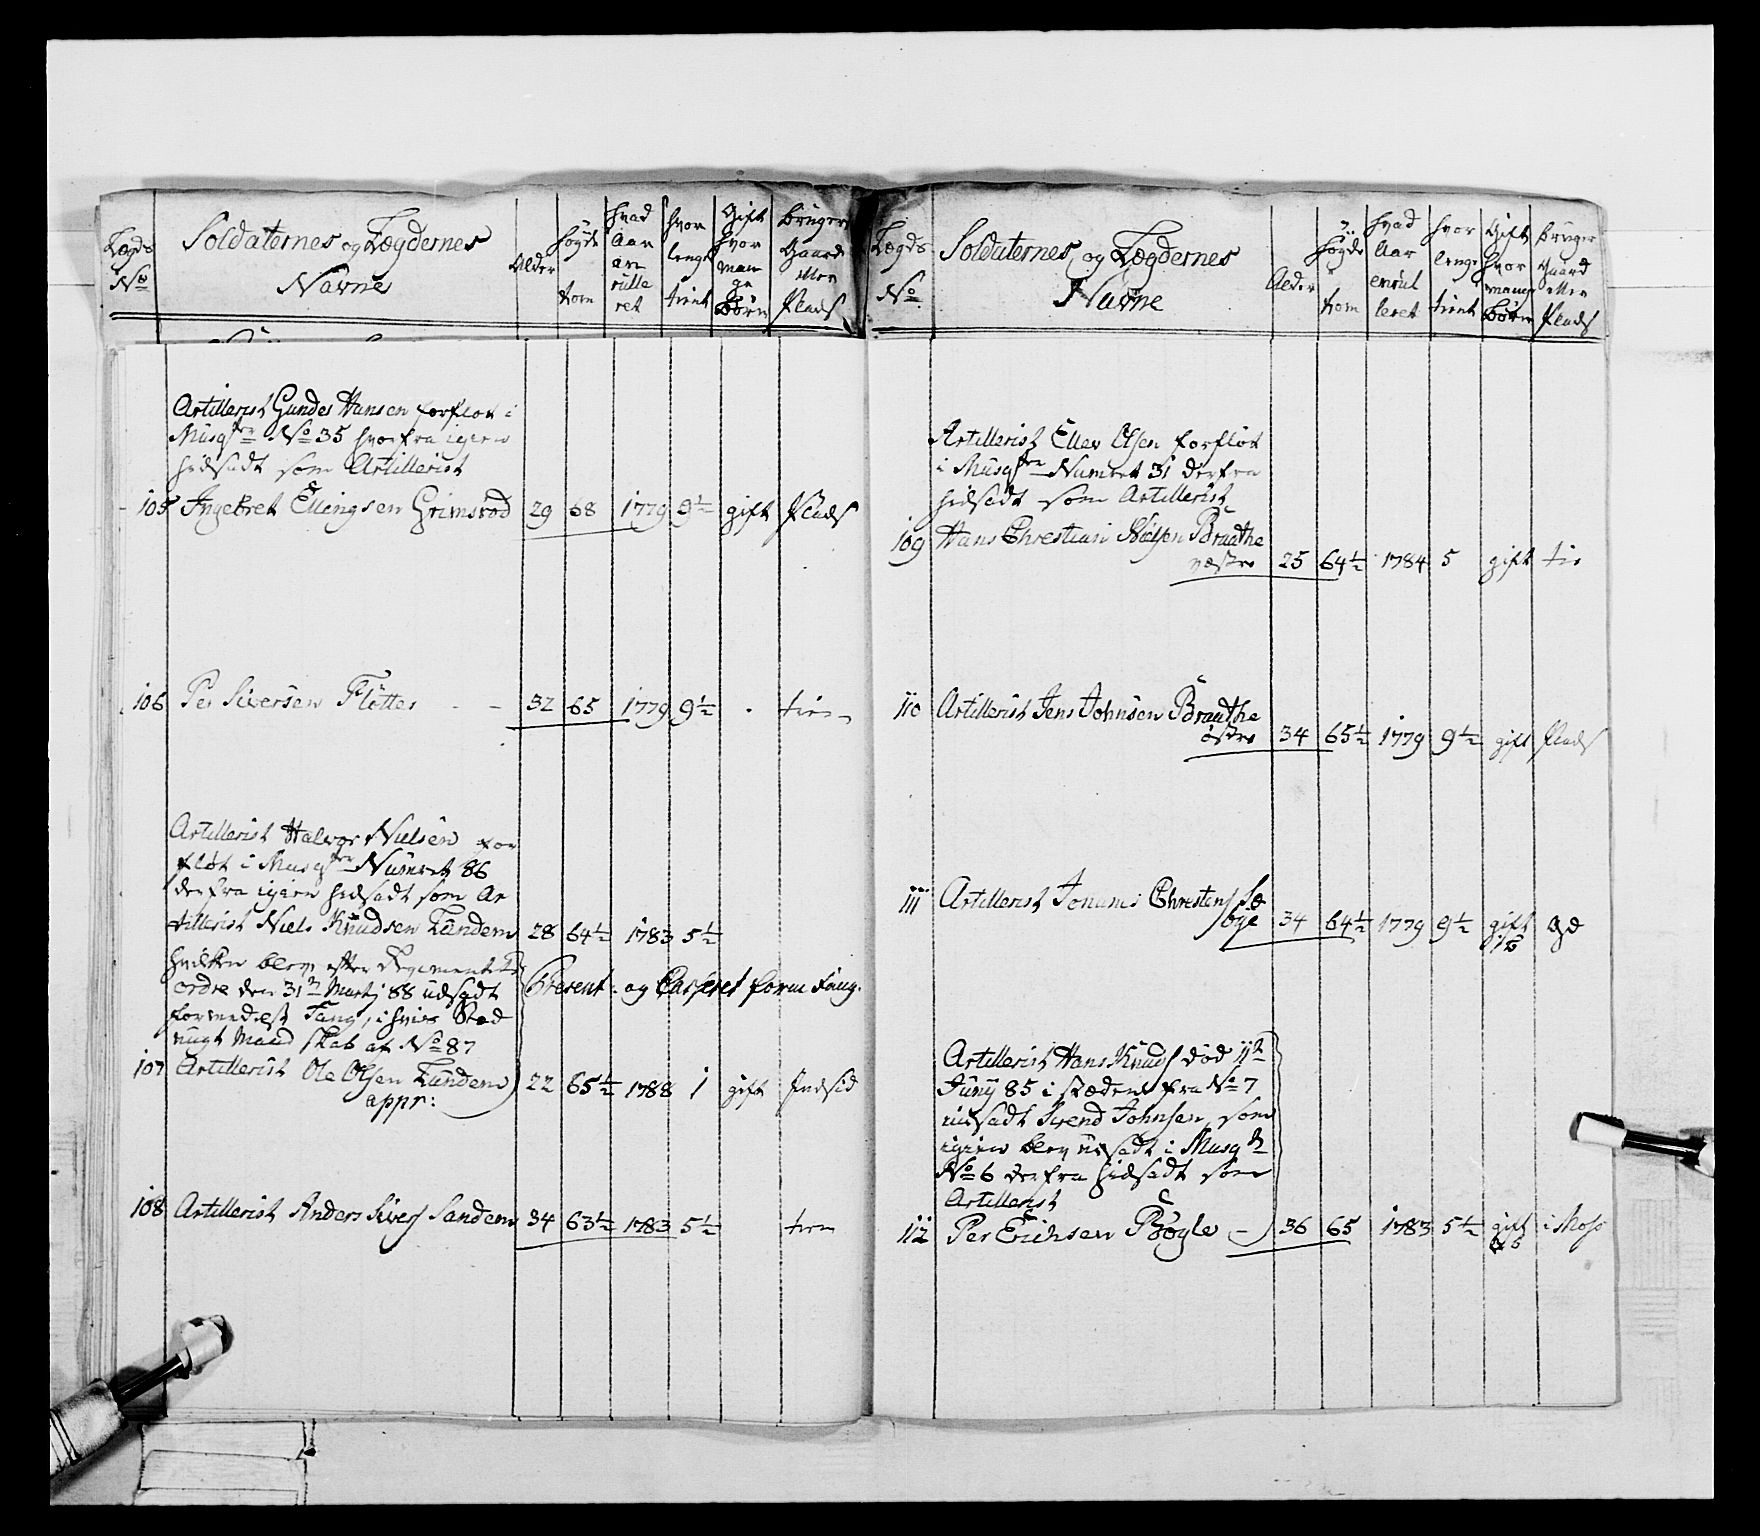 Lægds No
Soldaternes og Lægdernes Navne
Alder
høyde tom
hvad Aar en rulle ret
hvor lenge tient
Gift hvor man ge Børn
bruger Gaard eller Plads
Artillerist Gundes Hansen forfløt i
Musqtr No 35 hvorfra igien
hidsadt som Artillerist
105 Ingebret Ellingsen Grimsrød 29 68 1779 9½ gift Plads
106 Per Siversen Fløtter - - 32 65 1779 9½ . tien
Artillerist Halvor Nielsen for
fløt i Musqtr Numret 86
derfra igien hidsadt som Ar
tillerist Niels Knudsen Lundem 28 64½ 1783 5½
hvilken blev efter Regimentets
ordre den 31te Martj 88 udsadt
formedelst Fang, i hvis Sted
nügt Mand skab af No 87
Present. og Casseret form Fang.
107 Artillerist Ole Olsen Lundem 22 65½ 1788 1 gift Indsid
appr:
108 Artillerist Anders Sivers Sandem 34 63½ 1783 5½ tien
Lægds No
Soldaternes og Lægdernes Navne
Alder
høyde tom
hvad Aar enrul leret
hvor lenge tient
Gift hvor mange Børn
bruger Gaard eller Plads
Artillerist Ellev Olsen forfløt
i Musqtr Numret 31 derfra
hidsadt som Artillerist
109 Hans Christian Nielsen Braathe
væstre 25 64½ 1784 5 gift tie
110 Artillerist Jens Johnsen Braathe
østre 34 65½ 1779 9½ gift Plads
111 Artillerist Christens Sæ
bye 34 64½ 1779 9½ gift gd
Artillerist Hans Knuds død 11te
Juny 85 i stæden fra No 7
udsadt Svend Johnsen, som
igien blev udsadt i Musqtr
No 6 derfra hidsadt som
Artillerist
112 Per Erichsen Bøgle - 36 65 1783 5½ gift i Moss